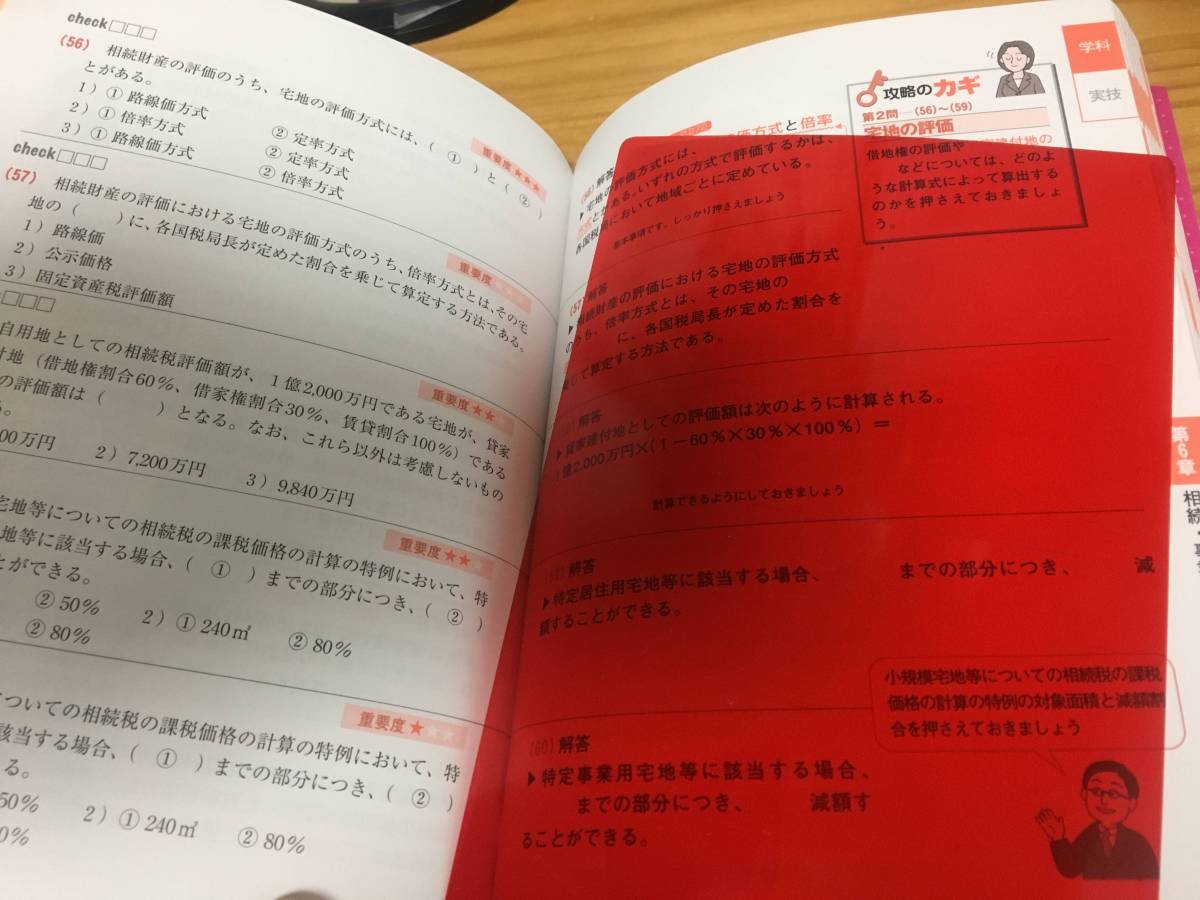 check□□□
(56) 相続財産の評価のうち、宅地の評価方式には、( ① )と( ② )
とがある。
重要度★★★
1) ① 路線価方式 ② 定率方式
2) ① 倍率方式 ② 定率方式
3) ① 路線価方式 ② 倍率方式
check□□□
重要度★★★
(57) 相続財産の評価における宅地の評価方式のうち、倍率方式とは、その宅
地の( )に、各国税局長が定めた割合を乗じて算定する方法である。
1) 路線価
2) 公示価格
3) 固定資産税評価額
□□□
重要度★★★
自用地としての相続税評価額が、1億2,000万円である宅地が、貸家
付地(借地権割合60%、借家権割合30%、賃貸割合100%)である
の評価額は( )となる。なお、これら以外は考慮しないもの
る。
00万円 2) 7,200万円 3) 9,840万円
重要度★★★
宅地等についての相続税の課税価格の計算の特例において、特
地等に該当する場合、( ① )までの部分につき、( ② )
とができる。
② 50% 2) ① 240㎡ ② 80%
② 80%
重要度★★★
ついての相続税の課税価格の計算の特例において、特
該当する場合、( ① )までの部分につき、( ② )
る。
50% 2) ① 240㎡ ② 80%
0%
学科
実技
攻略のカギ
第2問―(56)〜(59)
宅地の評価
借地権の評価や
などについては、どのよ
うな計算式によって算出する
のかを押さえておきましょ
う。
価方式と倍率
解答
▶宅地の評価方式には、
とがある。いずれの方式で評価するかは、
各国税局において地域ごとに定めている。
基本事項です。しっかり押さえましょう
(57) 解答
▶相続財産の評価における宅地の評価方式
のうち、倍率方式とは、その宅地の
に、各国税局長が定めた割合を
乗じて算定する方法である。
解答
▶貸家建付地としての評価額は次のように計算される。
1億2,000万円×(1−60%×30%×100%)=
計算できるようにしておきましょう
解答
▶特定居住用宅地等に該当する場合、 までの部分につき、 減
額することができる。
小規模宅地等についての相続税の課税
価格の計算の特例の対象面積と減額割
合を押さえておきましょう
(60) 解答
▶特定事業用宅地等に該当する場合、
までの部分につき、 減額す
ることができる。
第6章
相続・事